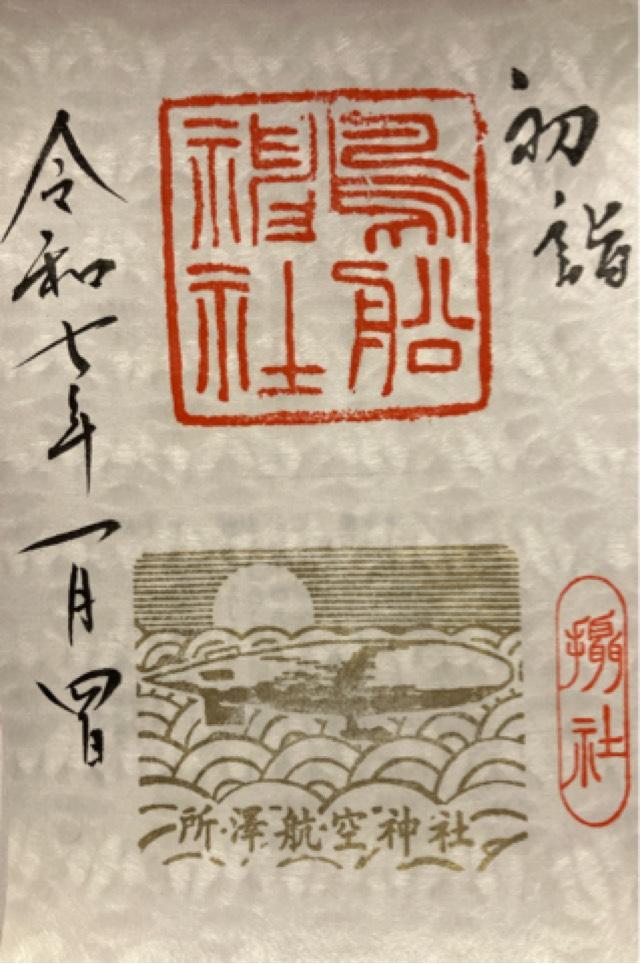 初詣
鳥船
神社
攝社
所澤航空神社
令和七年一月四日